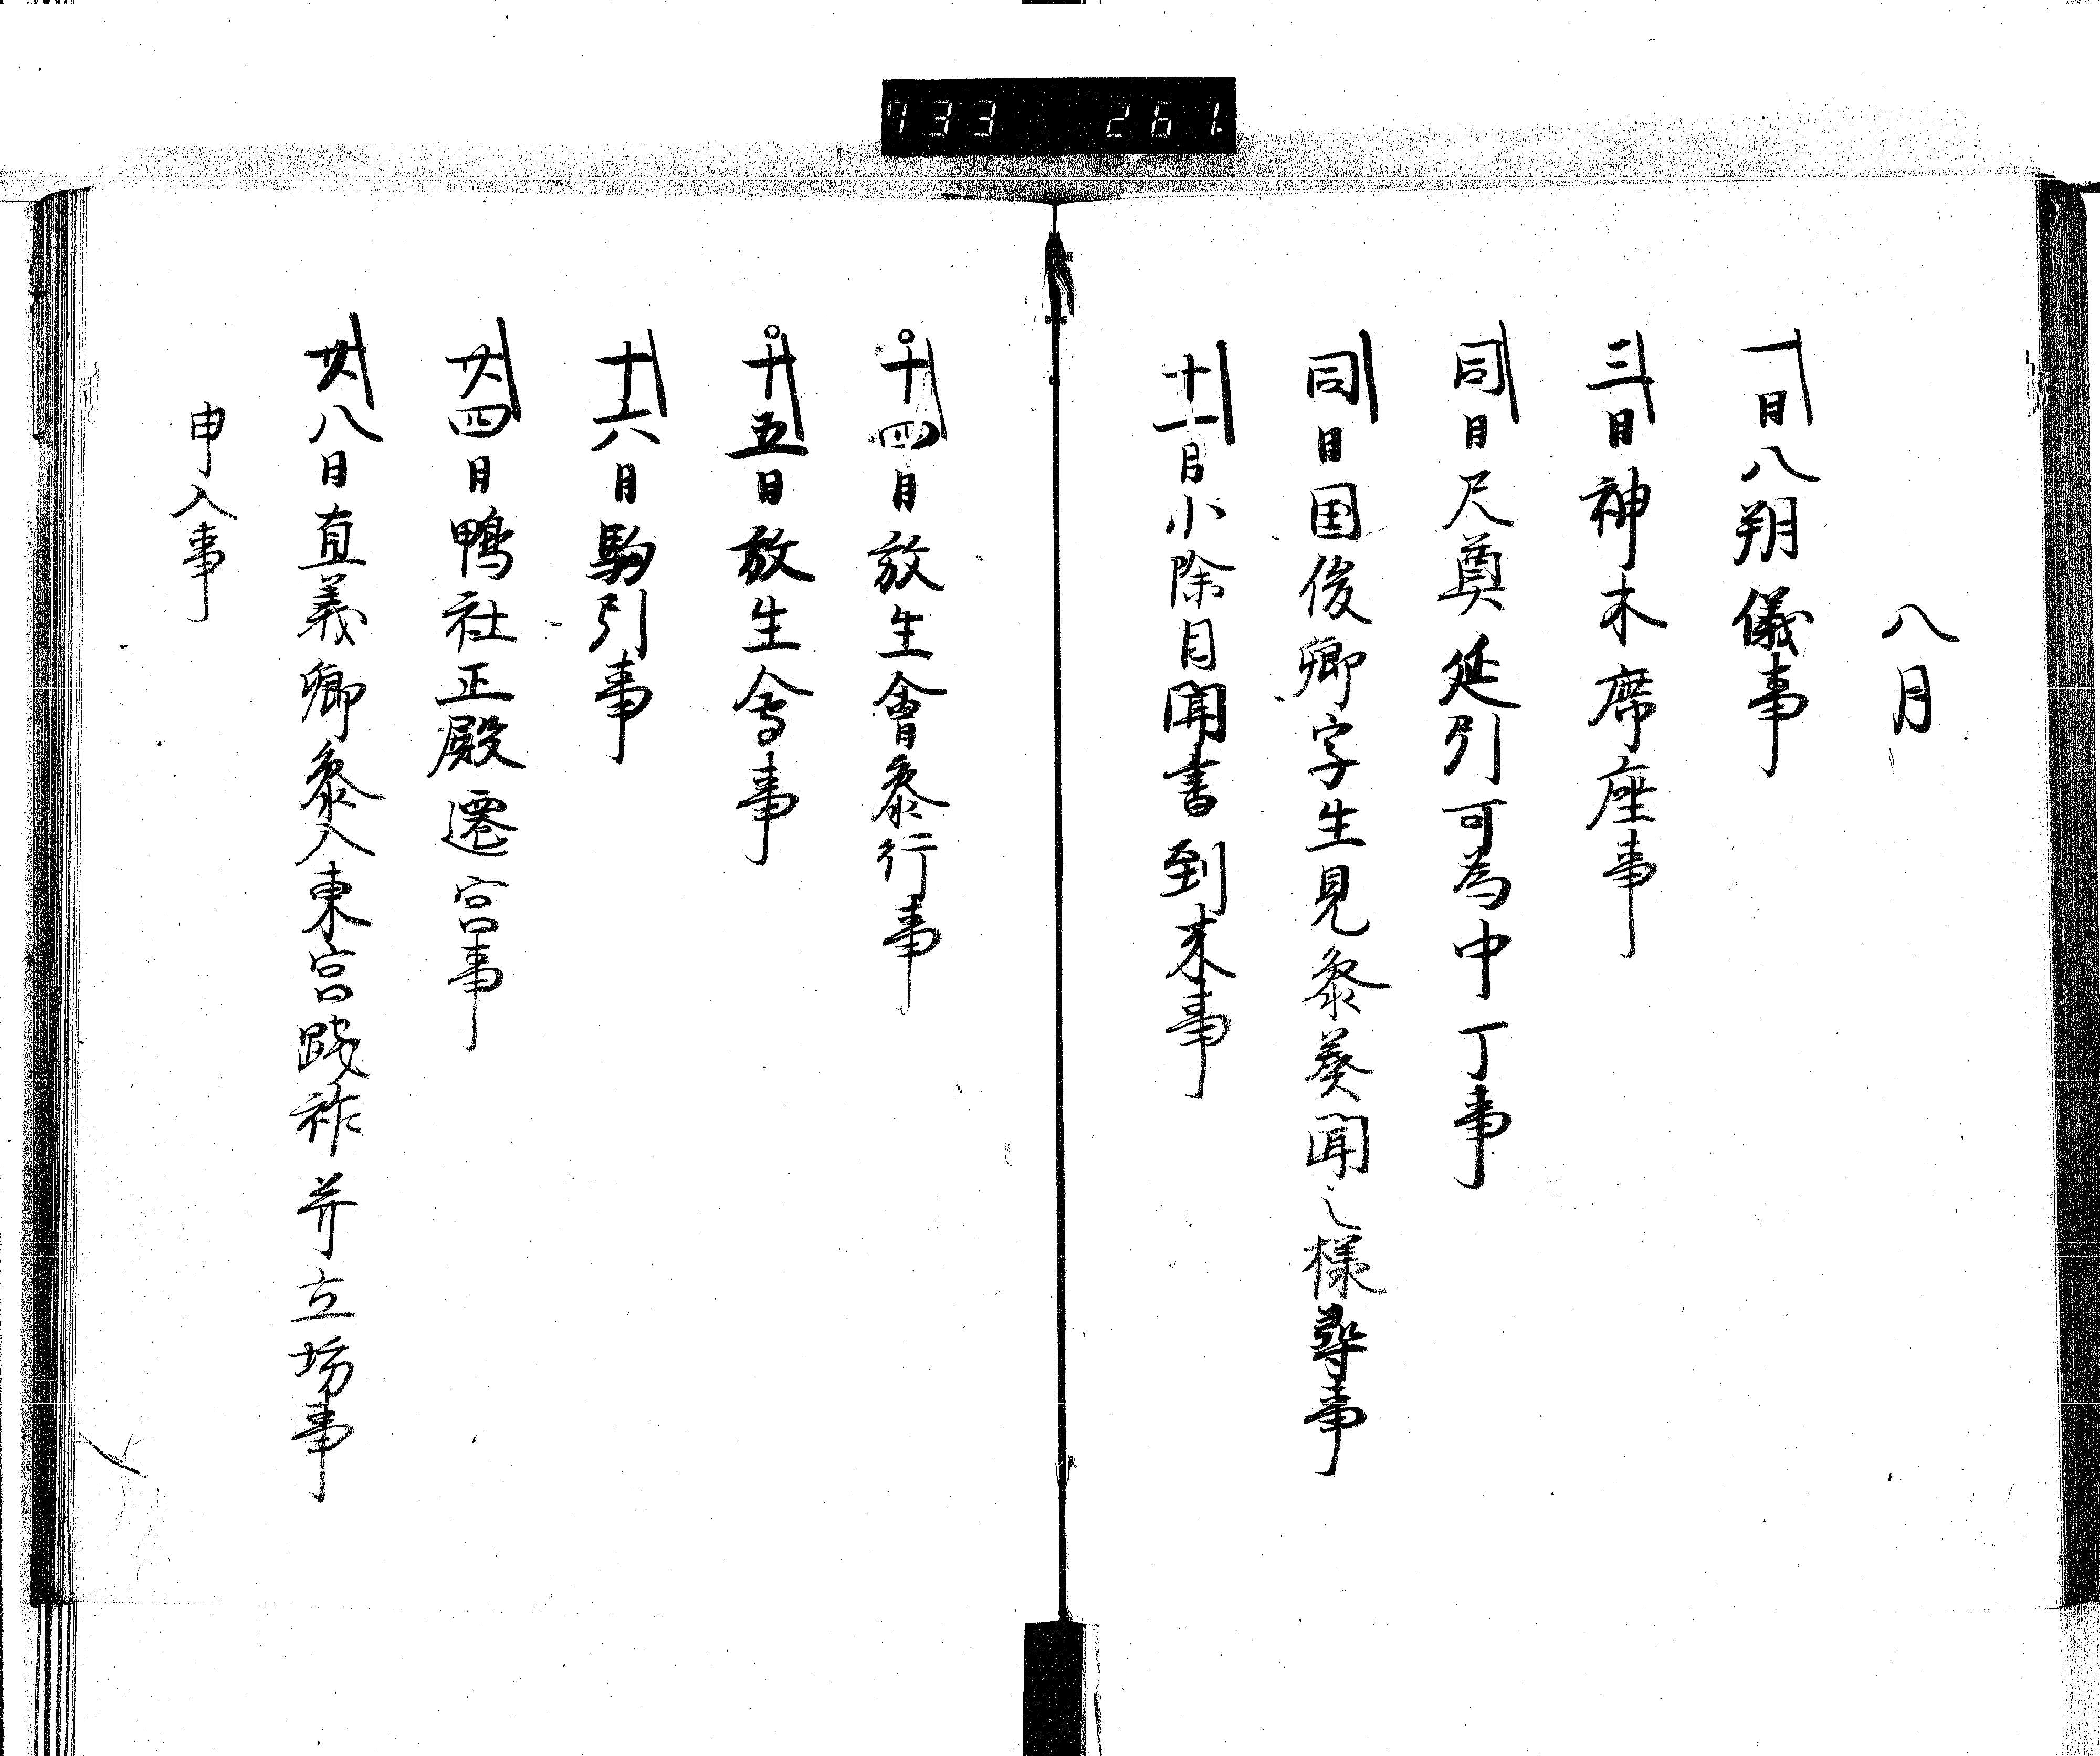 733 261.
八月
一日八朔儀事
三日神木帰座事
同日尺奠延引可為中丁事
同日国俊卿字生見参葵聞之様尋事
十一日小除目聞書到来事
十四日放生會参行事
十五日放生會事
十六日駒引事
廿四日鴨社正殿遷宮事
廿八日直義卿参入東宮践祚并立坊事
申入事